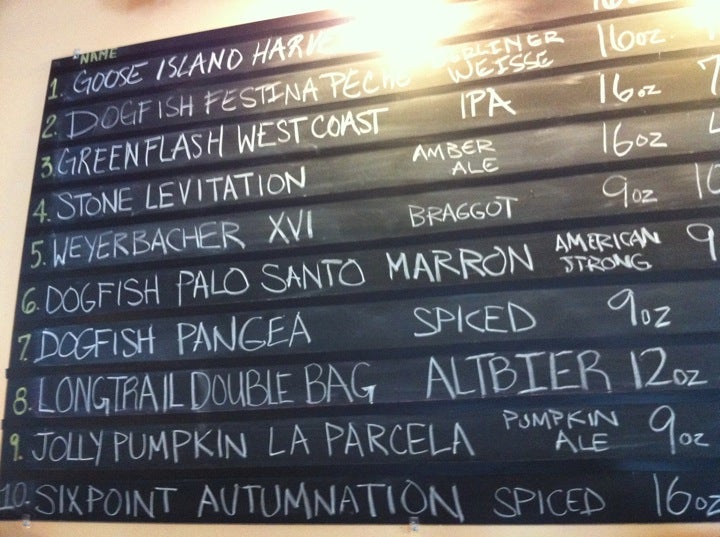 NAME
1. GOOSE ISLAND 16oz
2. DOGFISH FESTINA PECHE BERLINER WEISSE 16oz. 7
3. GREEN FLASH WEST COAST IPA 16oz
4. STONE LEVITATION AMBER ALE 16oz
5. WEYERBACHER XVI BRAGGOT 9oz 10
6. DOGFISH PALO SANTO MARRON AMERICAN STRONG 9
7. DOGFISH PANGEA SPICED 9oz
8. LONGTRAIL DOUBLE BAG ALTBIER 12oz
9. JOLLY PUMPKIN LA PARCELA PUMPKIN ALE 9oz
10. SIXPOINT AUTUMNATION SPICED 16oz